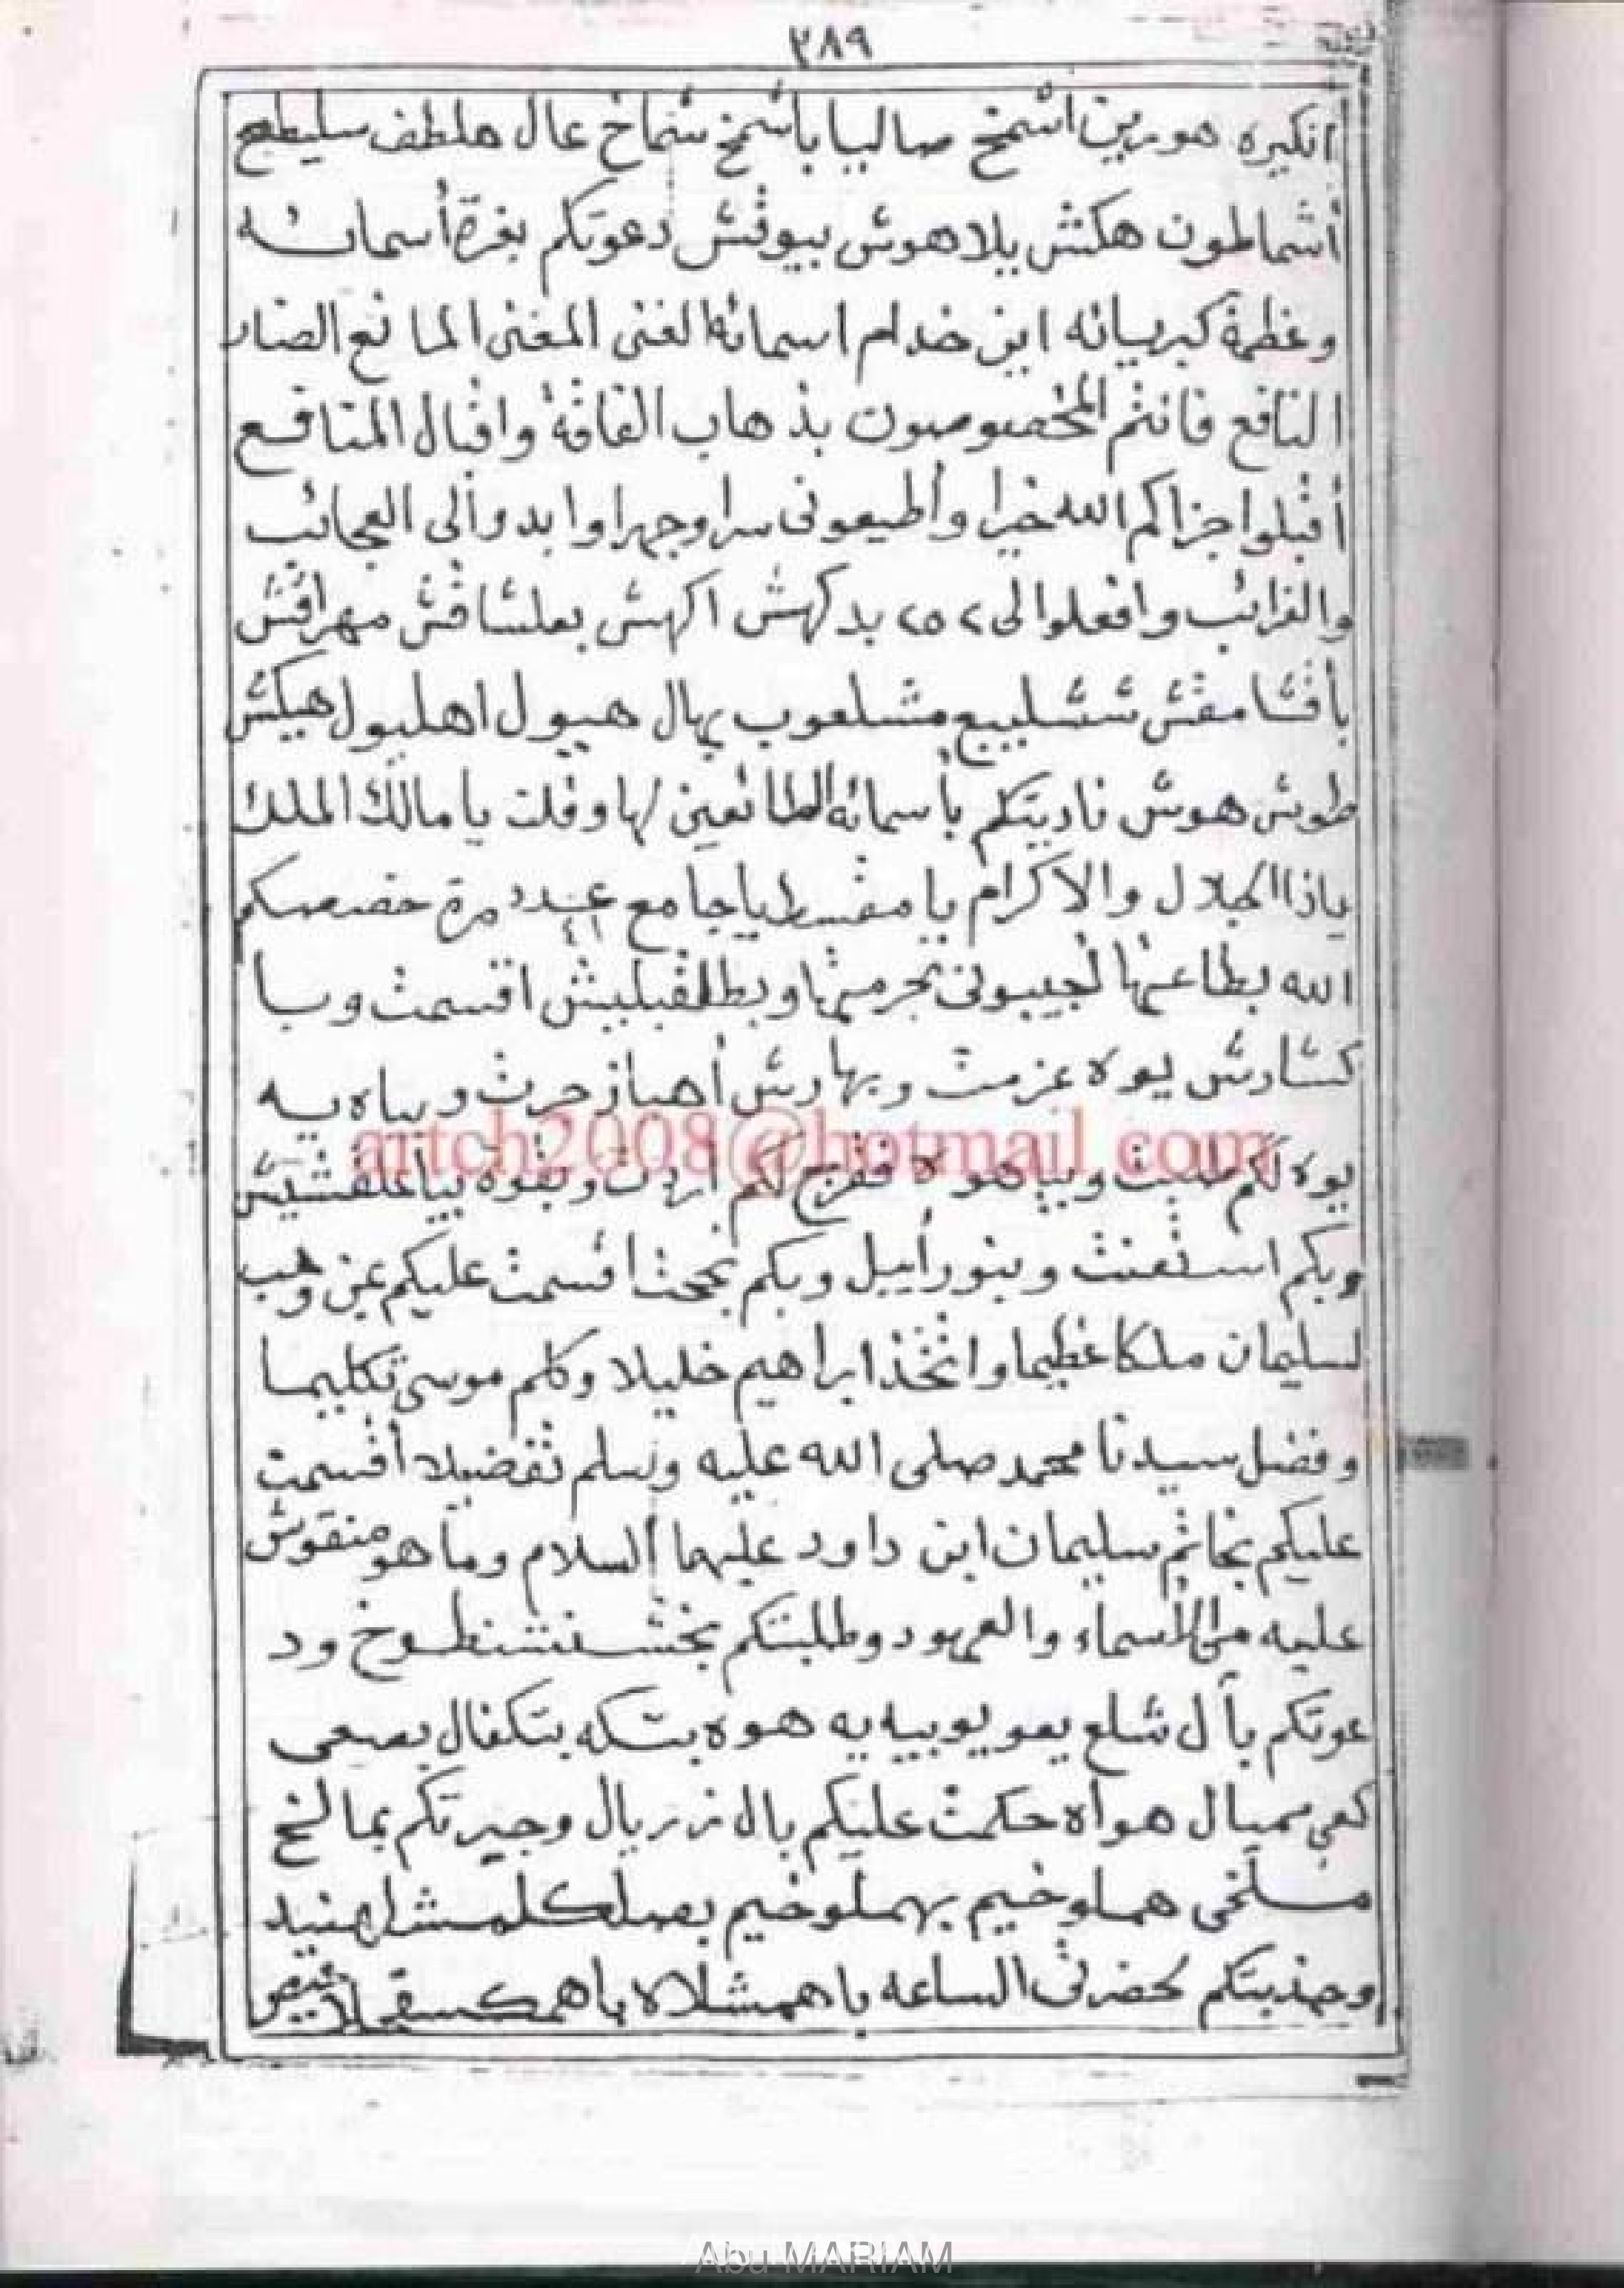 ٣٨٩
انكيره هورين اشمخ صاليا باشمخ شماخ عال هلطف سليطع
أشماطون هكش يلاهوش بيوقش دعوتكم بغرة أسمائه
وعظمة كبريائه اين خدام اسمائه الغنى المغنى المانع الضار
النافع فانتم المخصوصون بذهاب الفاقة واقبال المنافع
أقبلوا جزاكم الله خيرا وأطيعونى سرا وجهرا وابدوا لى العجائب
والغرائب وافعلوا لى بدكهش اكهش بعلشاقش مهراقش
بأقشامقش شقشلييع مشلعوب يهال هيول اهليول هيكش
طوش هوش ناديتكم بأسمائه الطائعين لها وقلت يا مالك الملك
ياذا الجلال والاكرام يا مقسط يا جامع عدد ٤١ مرة خصصكم
الله بطاعتها لجيبونى بحرمتها وبطلقبليش اقسمت وبا
كشارش يوه عزمت وبهارش أهباز حرت وبياه يه
يوه لكم طلبت وبياهو
وبكم استغنت وبنورأييل وبكم نجحت اقسمت عليكم عن وهب
لسليمان ملكا عظيما واتخذ ابراهيم خليلا وكلم موسى تكليما
وفضل سيدنا محمد صلى الله عليه وسلم تفضيلا أقسمت
عليكم بخاتم سليمان ابن داود عليهما السلام وما هو منقوش
عليه من الأسماء والعهود وطلبتكم ود
عوتكم بأل شلع يعو يوبيه يه هوه بتكه بتكفال بصعى
كعى مميال هوأه حكمت عليكم بال زريال وجيرتكم بما لخ
مسلخى هملوخيم بهملوخيم
وجذبتكم لحضرتى الساعه ياهمشلاه
artch2008@hotmail.com
Abu MARIAM